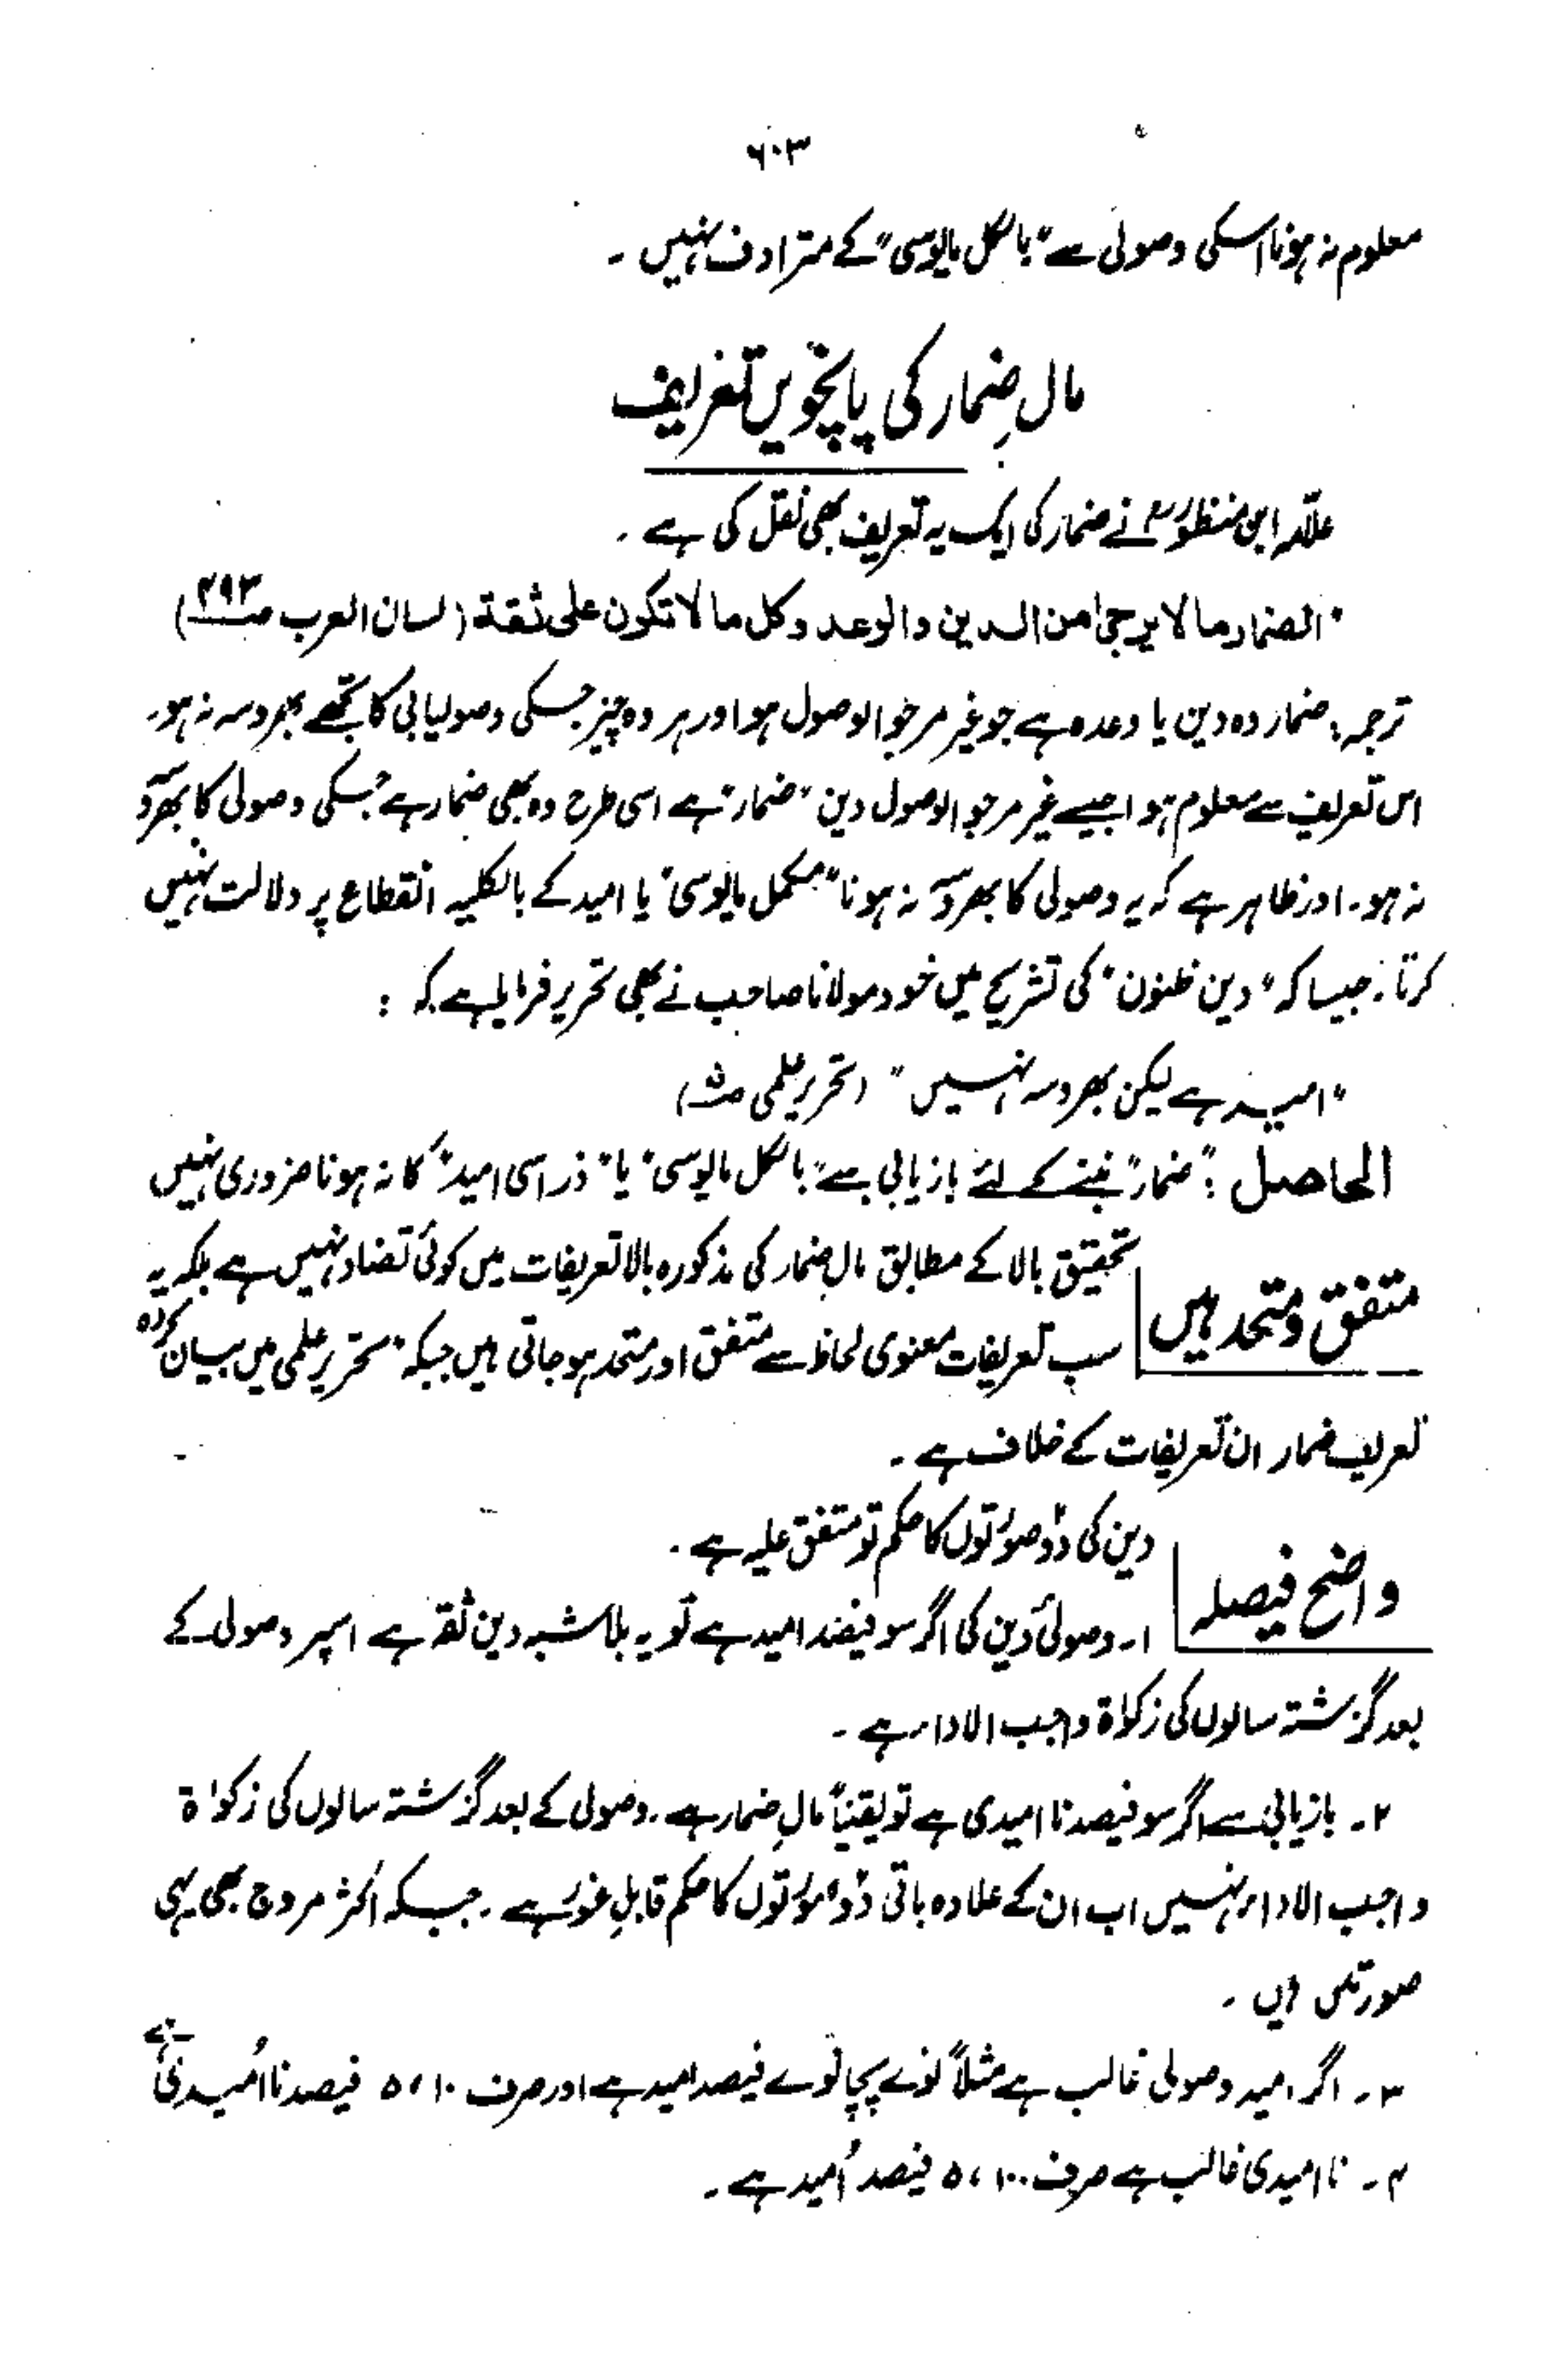 ۶۰۳
معلوم نہ ہونا اسکی وصولی سے "بالکل مایوسی" کے مترادف نہیں ۔
مالِ ضمار کی پانچویں تعریف
علامہ ابن منظورؒ نے ضمار کی ایک یہ تعریف بھی نقل کی ہے ۔
"الضمار ما لا یرجیٰ من الدین والوعد وکل ما لا تکون علی ثقة (لسان العرب ص۴۹۳)
ترجمہ: ضمار وہ دین یا وعدہ ہے جو غیر مرجو الوصول ہو اور ہر وہ چیز جسکی وصولیابی کا تجھے بھروسہ نہ ہو۔
اس تعریف سے معلوم ہوا جیسے غیر مرجو الوصول دین "ضمار" ہے اسی طرح وہ بھی ضمار ہے جسکی وصولی کا بھروسہ
نہ ہو۔ اور ظاہر ہے کہ یہ وصولی کا بھروسہ نہ ہونا "مکمل مایوسی" یا امید کے بالکلیہ انقطاع پر دلالت نہیں
کرتا۔ جیسا کہ "دین ظنون" کی تشریح میں خود مولانا صاحب نے بھی تحریر فرمایا ہے کہ :
"امید ہے لیکن بھروسہ نہیں" (تحریر علمی ص۵)
الحاصل : "ضمار" بننے کے لئے بازیابی سے "بالکل مایوسی" یا "ذراسی امید" کا نہ ہونا ضروری نہیں
متفق و متحد ہیں
تحقیق بالا کے مطابق مال ضمار کی مذکورہ بالا تعریفات میں کوئی تضاد نہیں ہے بلکہ یہ
سب تعریفات معنوی لحاظ سے متفق اور متحد ہو جاتی ہیں جبکہ "تحریر علمی میں بیان کردہ
تعریف ضمار ان تعریفات کے خلاف ہے ۔
واضح فیصلہ
دین کی دو صورتوں کا حکم تو متفق علیہ ہے ۔
۱۔ وصولئ دین کی اگر سو فیصد امید ہے تو یہ بلا شبہ دین ثقہ ہے اسپر وصولی کے
بعد گزشتہ سالوں کی زکوٰة واجب الاداء ہے ۔
۲۔ بازیابی سے اگر سو فیصد نا امیدی ہے تو یقیناً مالِ ضمار ہے ۔ وصولی کے بعد گزشتہ سالوں کی زکوٰة
واجب الاداء نہیں اب ان کے علاوہ باقی دو صورتوں کا حکم قابلِ غور ہے ۔ جبکہ اکثر مروج بھی یہی
صورتیں ہیں ۔
۳۔ اگر امید وصولی غالب ہے مثلاً نوے پچانوے فیصد امید ہے اور صرف ۱۰، ۵ فیصد نا اُمیدی ہے
۴۔ نا امیدی غالب ہے صرف ۱۰، ۵ فیصد اُمید ہے ۔